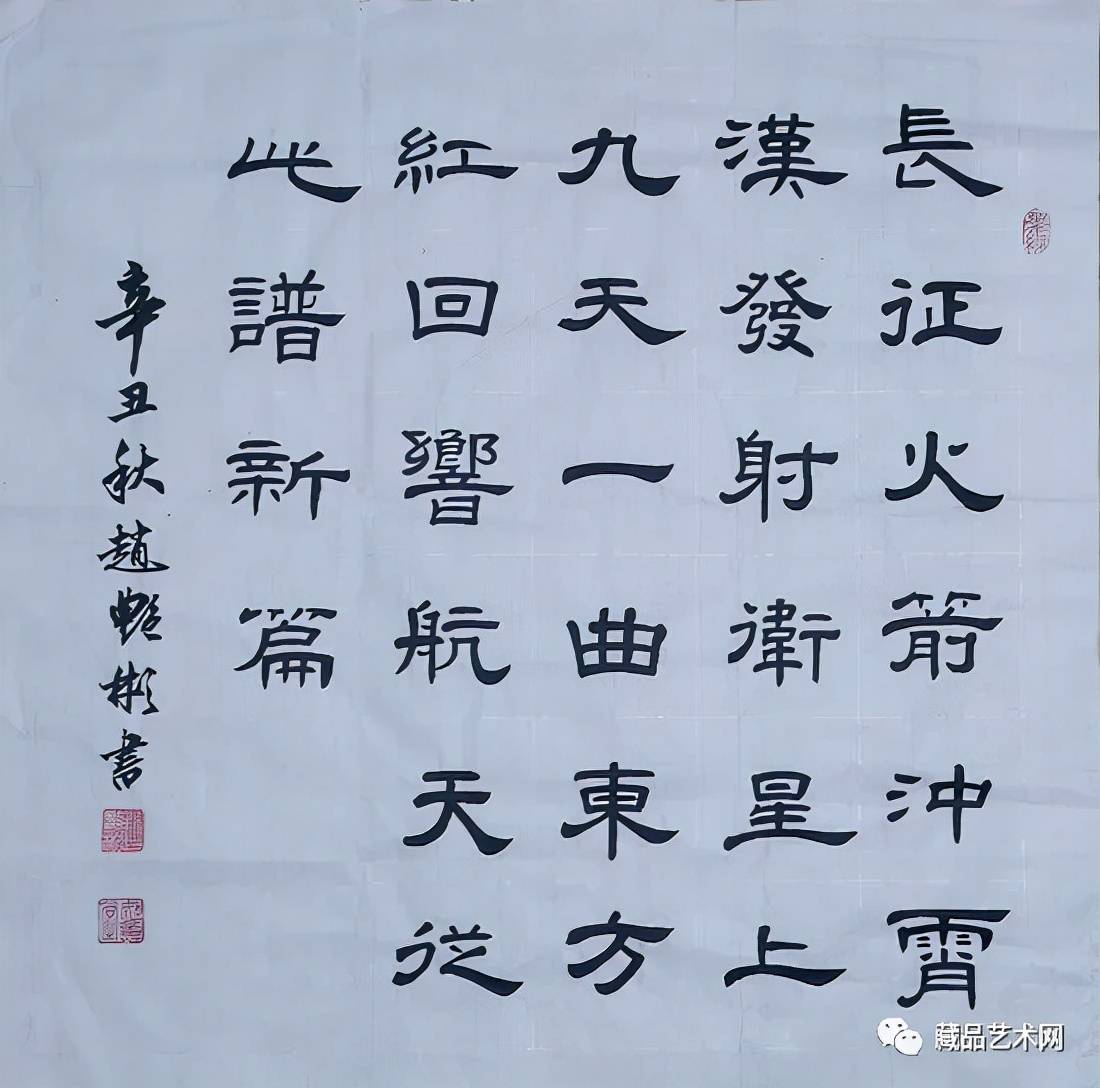 長征火箭沖霄
漢發射衛星上
九天一曲東方
紅回響航天従
此譜新篇
辛丑秋趙艷彬書
藏品艺术网